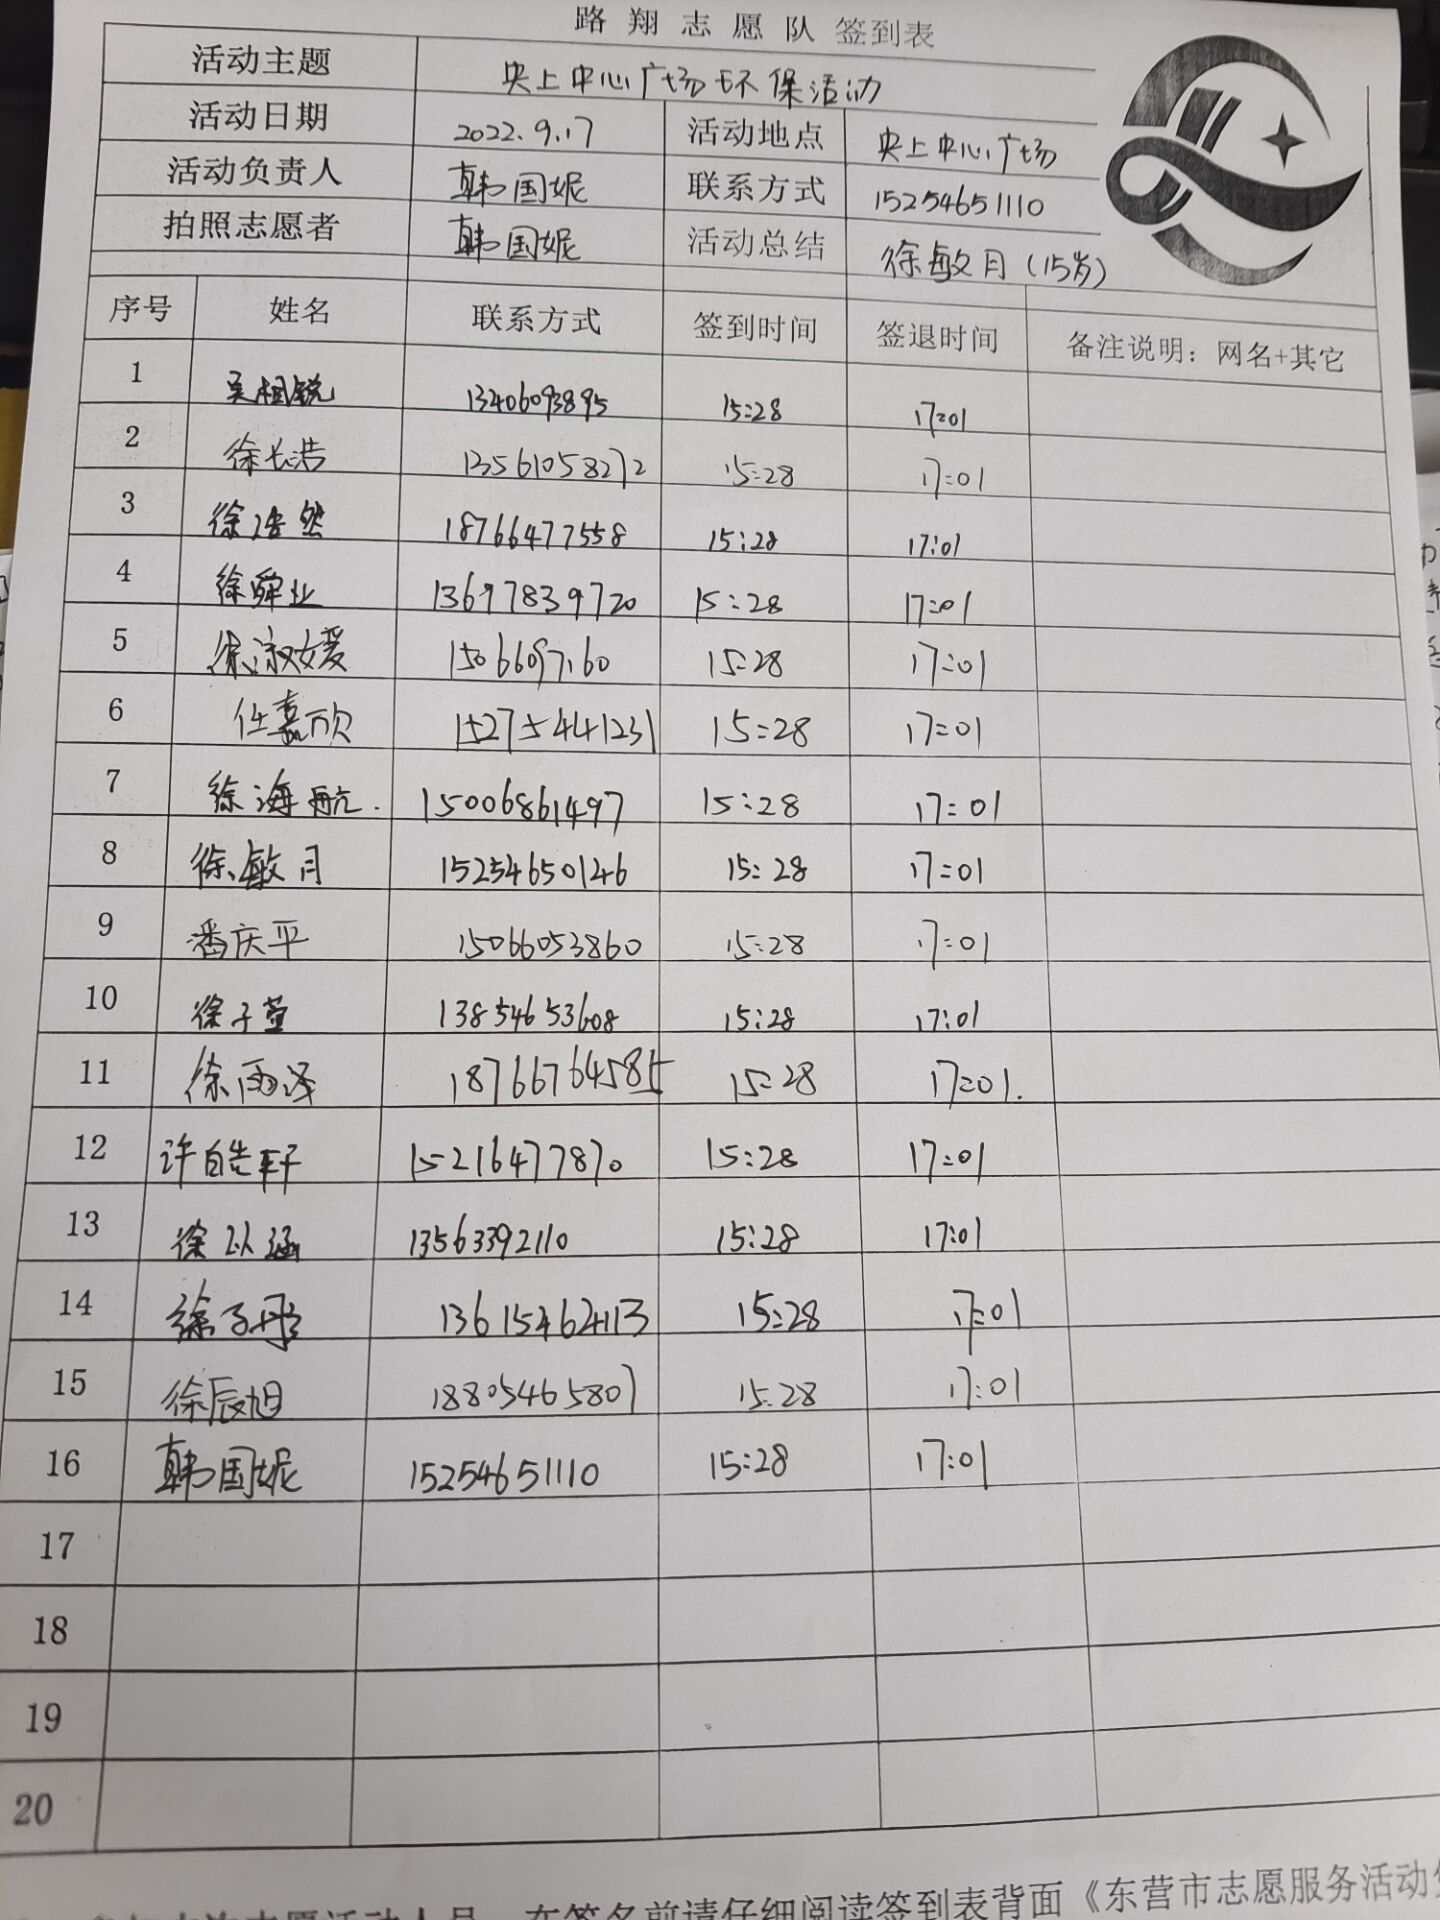 路翔志愿队 签到表
活动主题 央上中心广场环保活动
活动日期 2022.9.17 活动地点 央上中心广场
活动负责人 韩国妮 联系方式 15254651110
拍照志愿者 韩国妮 活动总结 徐敏月(15岁)
序号 姓名 联系方式 签到时间 签退时间 备注说明：网名+其它
1 吴相锐 13406093895 15:28 17:01
2 徐长浩 13561058272 15:28 17:01
3 徐浩然 18766477558 15:28 17:01
4 徐舜业 13697839720 15:28 17:01
5 徐淑媛 15:28 17:01
6 任嘉欣 15275441231 15:28 17:01
7 徐海航. 15006861497 15:28 17:01
8 徐敏月 15254650146 15:28 17:01
9 潘庆平 15066053860 15:28 17:01
10 徐子萱 13854653608 15:28 17:01
11 徐雨泽 18766764585 15:28 17:01.
12 许皓轩 15216477870 15:28 17:01
13 徐以涵 13563392110 15:28 17:01
14 徐子彤 13615462113 15:28 17:01
15 徐辰旭 18805465807 15:28 17:01
16 韩国妮 15254651110 15:28 17:01
17
18
19
20
在签名前请仔细阅读签到表背面《东营市志愿服务活动